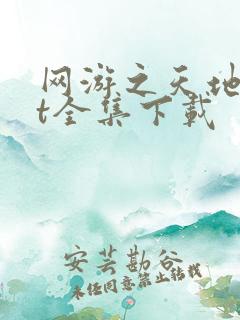 网游之天地
t全集下载
安芸勘谷
未经同意禁止转载